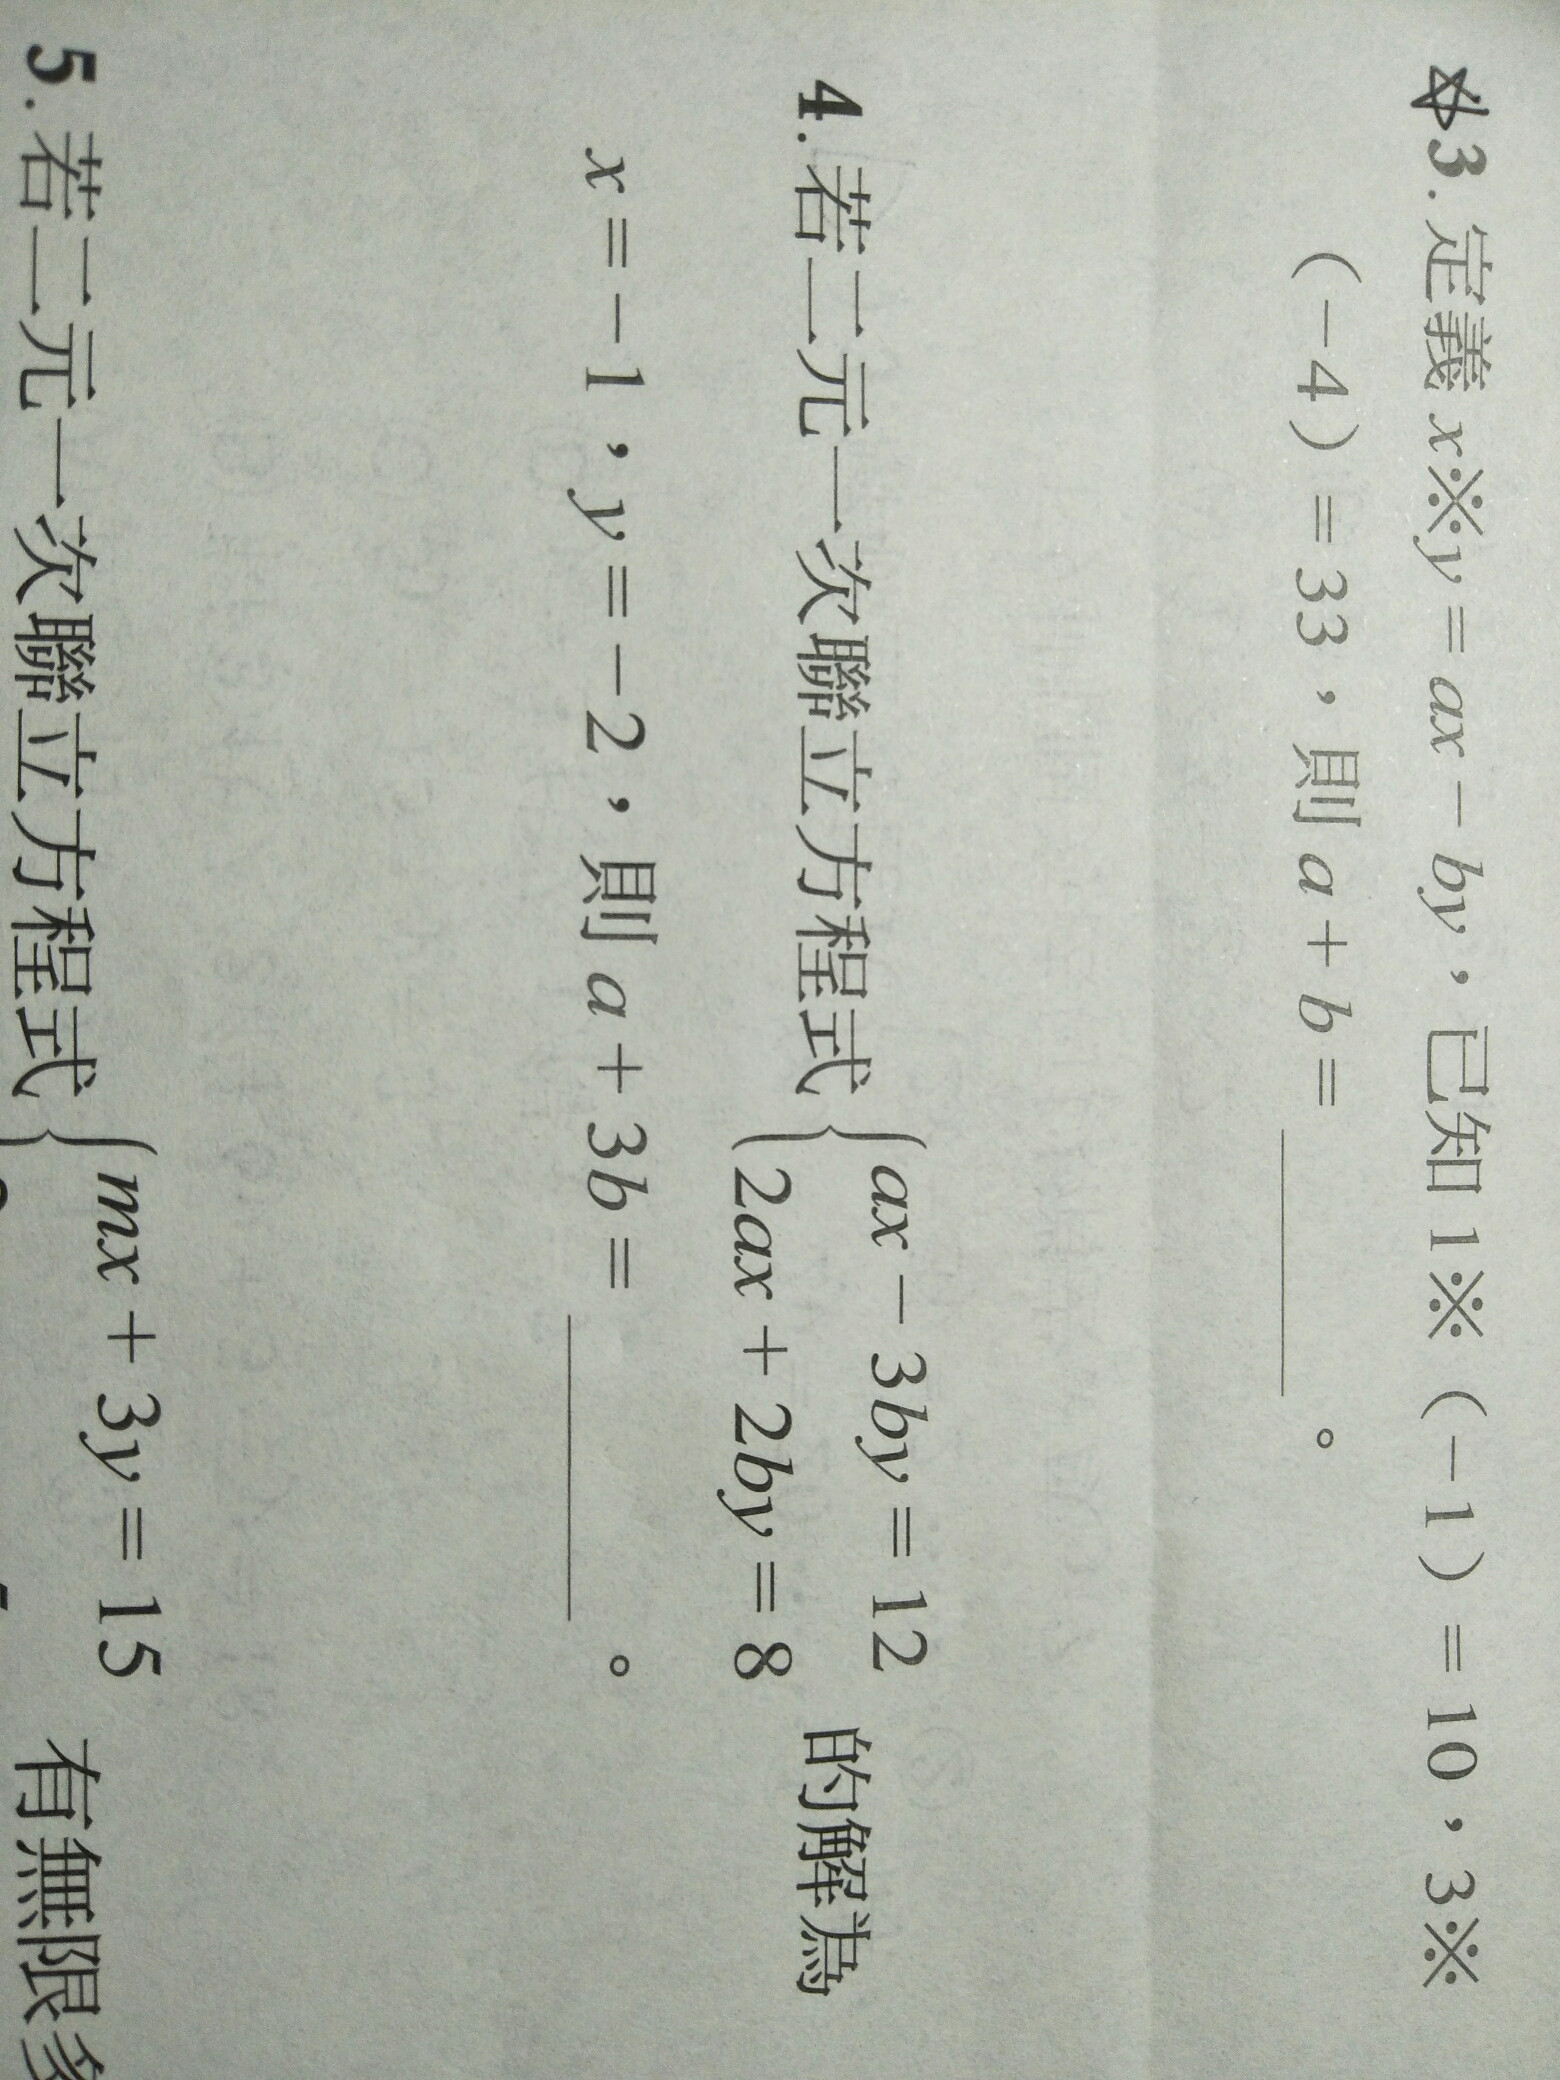 3.定義 x※y = ax − by，已知 1※（−1）= 10，3※
（−4）= 33，則 a + b = ______。
4.若二元一次聯立方程式{ax − 3by = 12
2ax + 2by = 8 的解為
x = −1，y = −2，則 a + 3b = ______。
5.若二元一次聯立方程式{mx + 3y = 15
有無限多